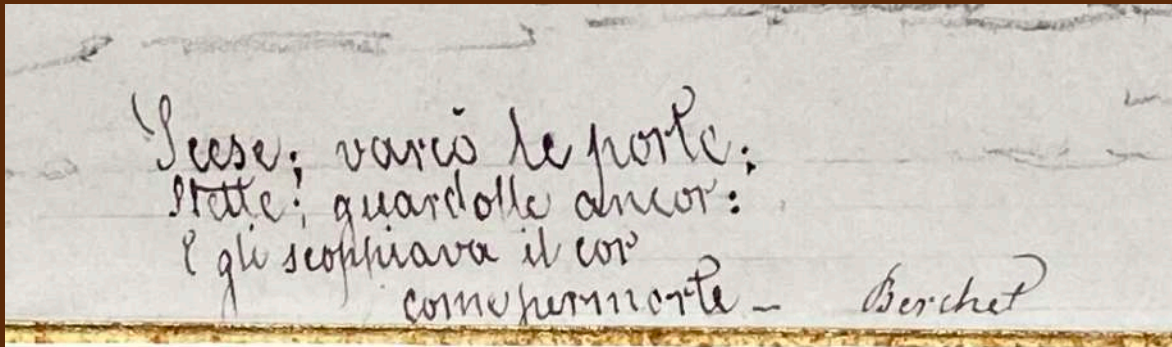 Scese; varcò le porte;
Stette; guardolle ancor:
E gli scoppiava il cor
come per morte – Berchet